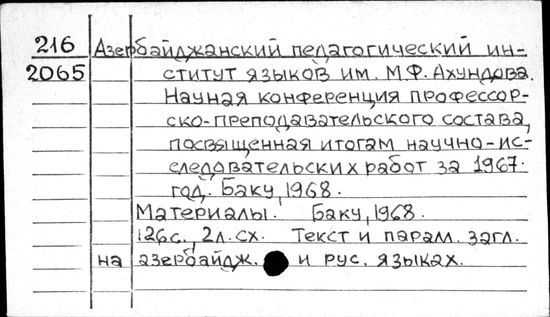 216 Азербайджанский педагогический ин-
2065 ститут языков им. М.Ф. Ахундова.
Научная конференция профессор-
ско-преподавательского состава,
посвященная итогам научно-ис-
следовательских работ за 1967
год. Баку, 1968.
Материалы. Баку, 1968.
126с., 2л.сх. Текст и парам. загл.
на азербайдж. и рус. языках.